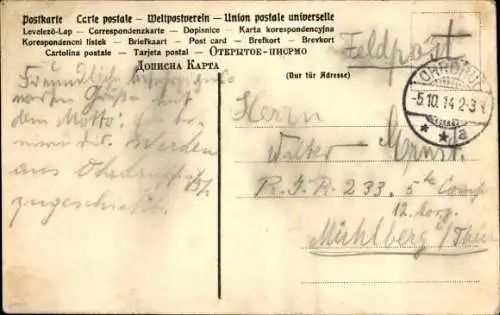 Postkarte – Carte postale – Weltpostverein – Union postale universelle
Levelező-Lap — Correspondenzkarte — Dopisnice — Karta korespondencyjna
Korespondenční lístek — Briefkaart — Post card — Brefkort — Brevkort
Cartolina postale — Tarjeta postal — Открытое-письмо
Дописна Карта
(Nur für Adresse)
Feldpost
-5.10.14.2-3
* * a
Freundlich
Grüße mit
dem Motto:
Werden
aus Ohrdruf
zugeschickt.
Herrn
Walter Ernst.
R.I.R. 233. 5te Comp
12. Korp.
Mühlberg / Thür